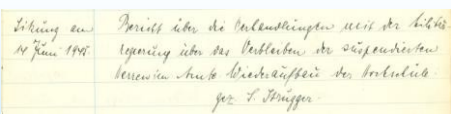 Sitzung am
14 Juni 1945.
Bericht über die Verhandlungen mit der Militär-
regierung über das Verbleiben der suspendierten
Herren im Amte Wiederaufbau der Vorschule.
gez. S.